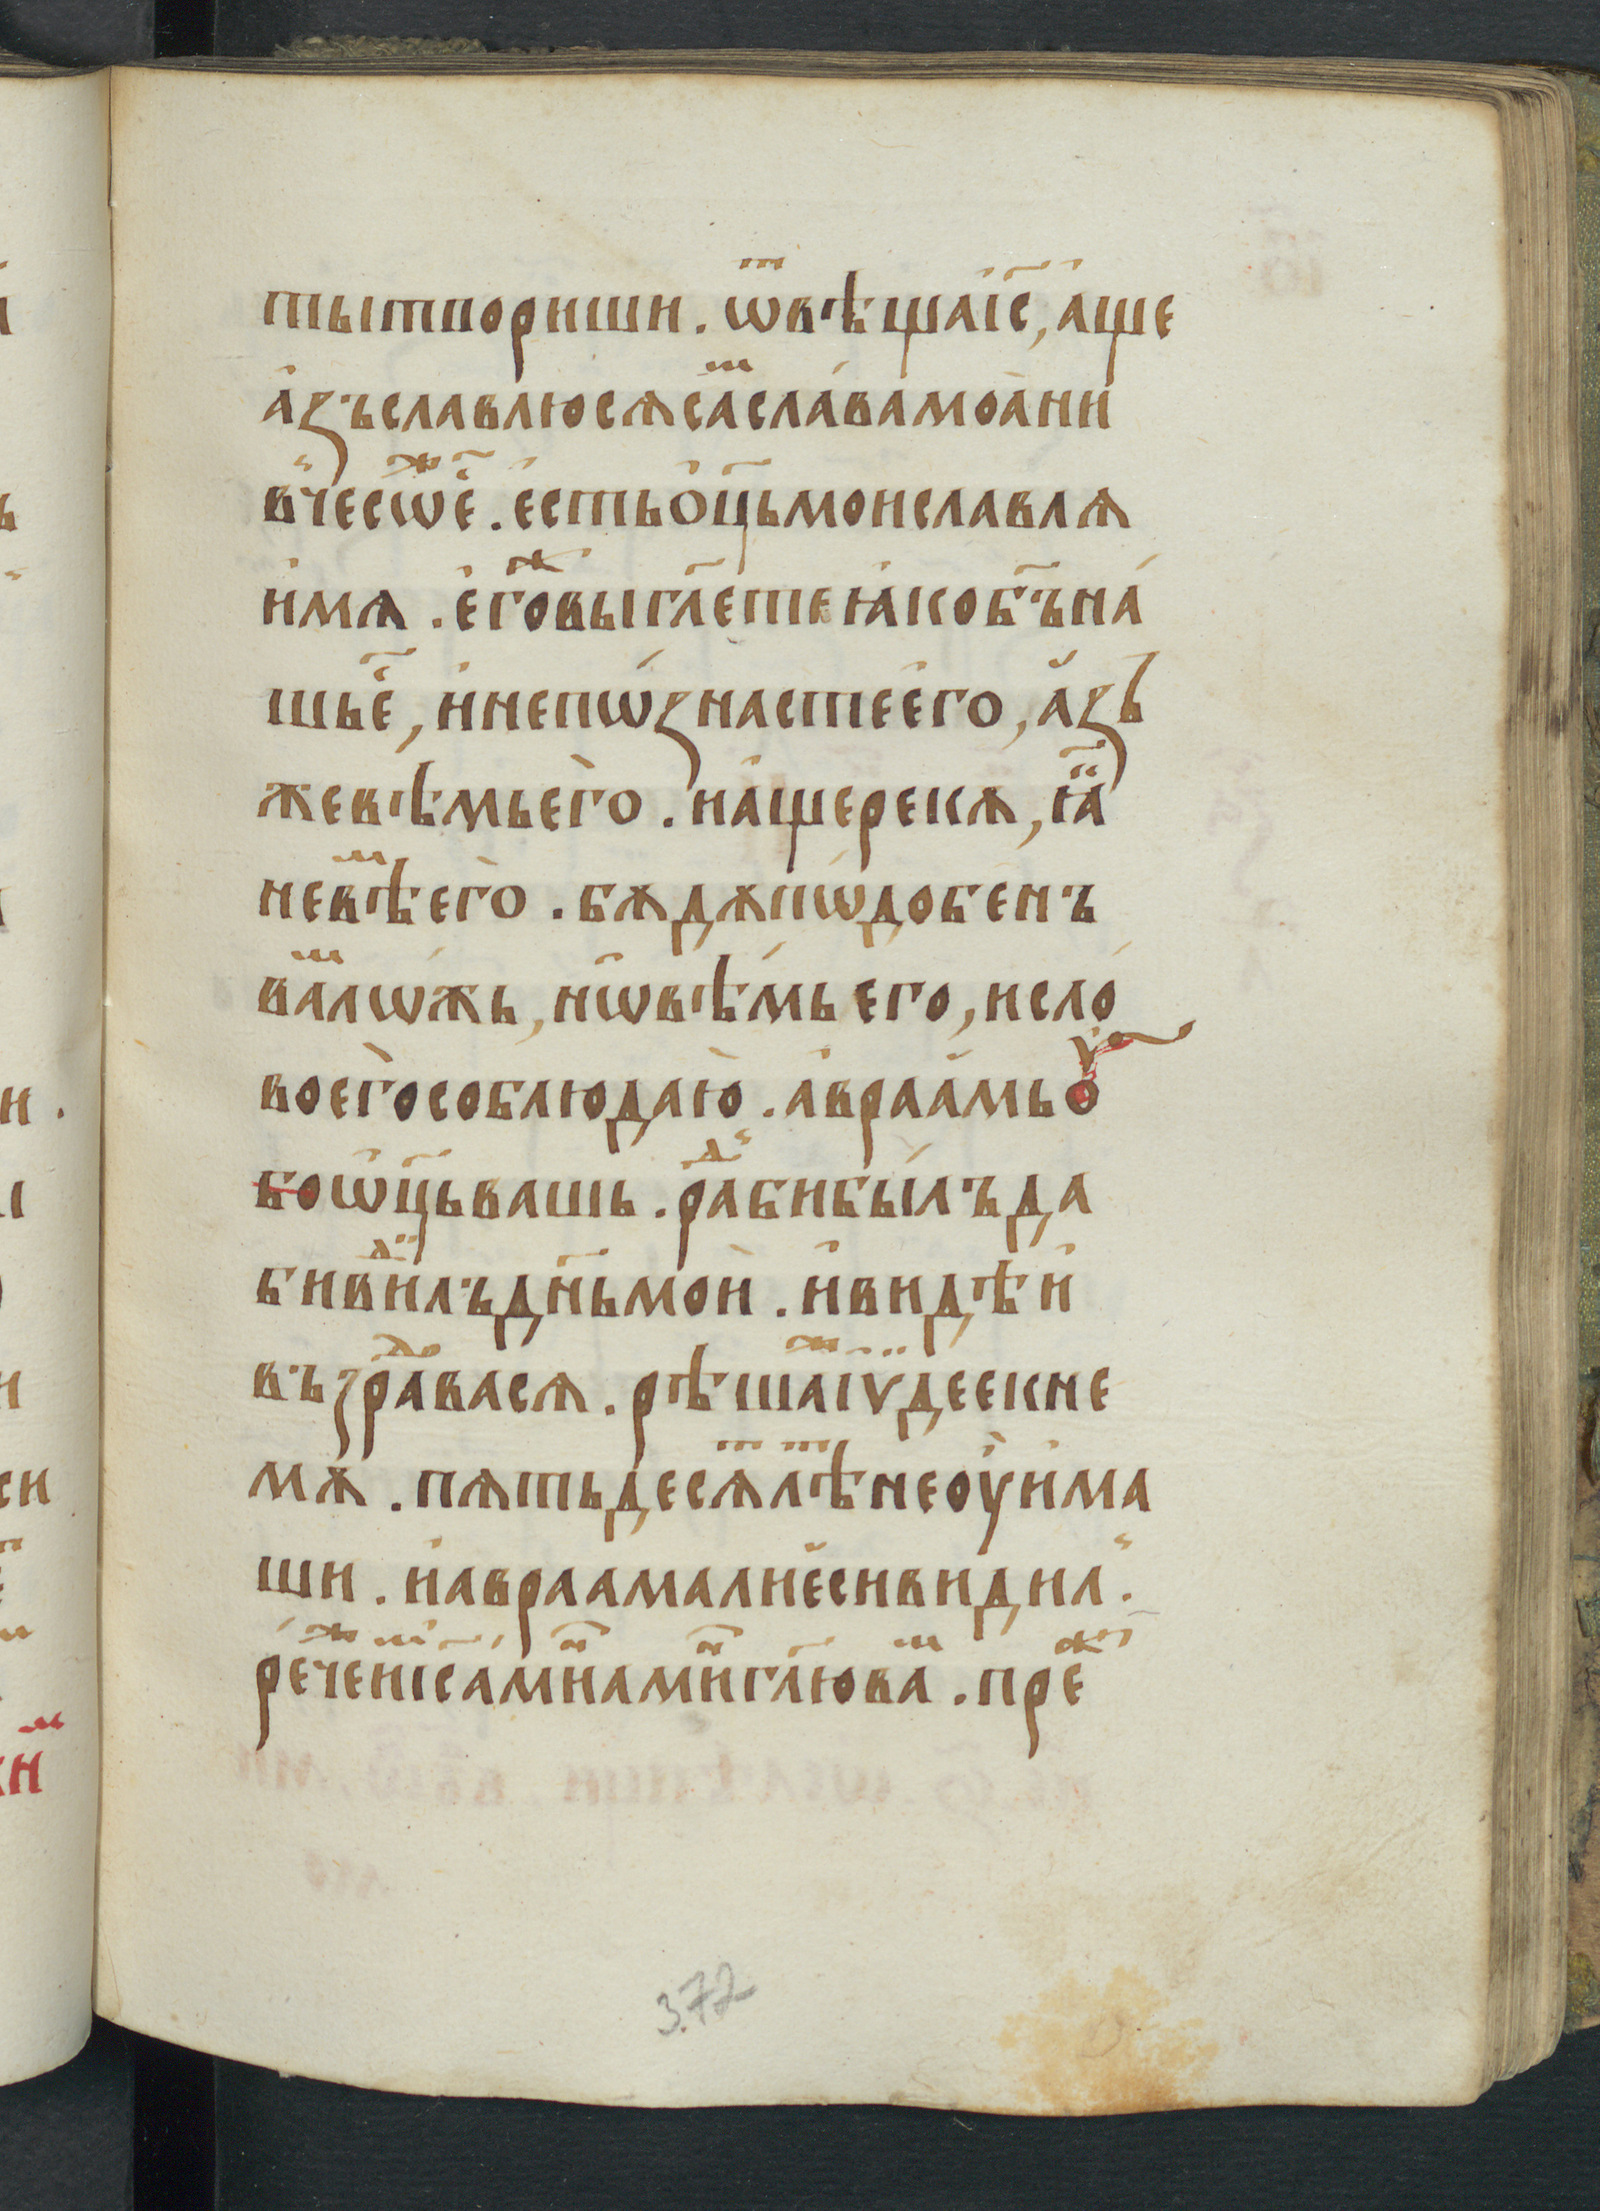 ты твориши. ѿвѣщаі҆с҃, аще
а҆зъ славлюся самъ сла́ва моа҆ ни
в҆чесѡ҆же є҆. есть ѻц҃ь мои славля
и҆мя. е҆гоже вы гл҃ете ꙗ҆ко бг҃ъ на́
шь е҆, и҆ непѡ́знасте е҆го, а҆зъ
же вѣмь е҆го. и҆ а҆ще рекѫ, ꙗ҆
невѣмь е҆го. бѫдѫ пѡ́добенъ
вамъ лѡжь, нѡ вѣмь его, и сло́
во е҆го соблюдаю҆. а҆враа҆мь оу
бо ѡ҆ц҃ь вашь. радъ би бы́лъ да
би видилъ дн҃ь мои. и҆ видѣ и҆
възрадовася. рѣшаже іѵдее к не
мѫ. пять десят лѣт не оу҆ има
ши. и҆ авраамали е҆си видил.
ре́чеже им і҆с҃ а҆мин амин гл҃ю вам. пре́же
3.72